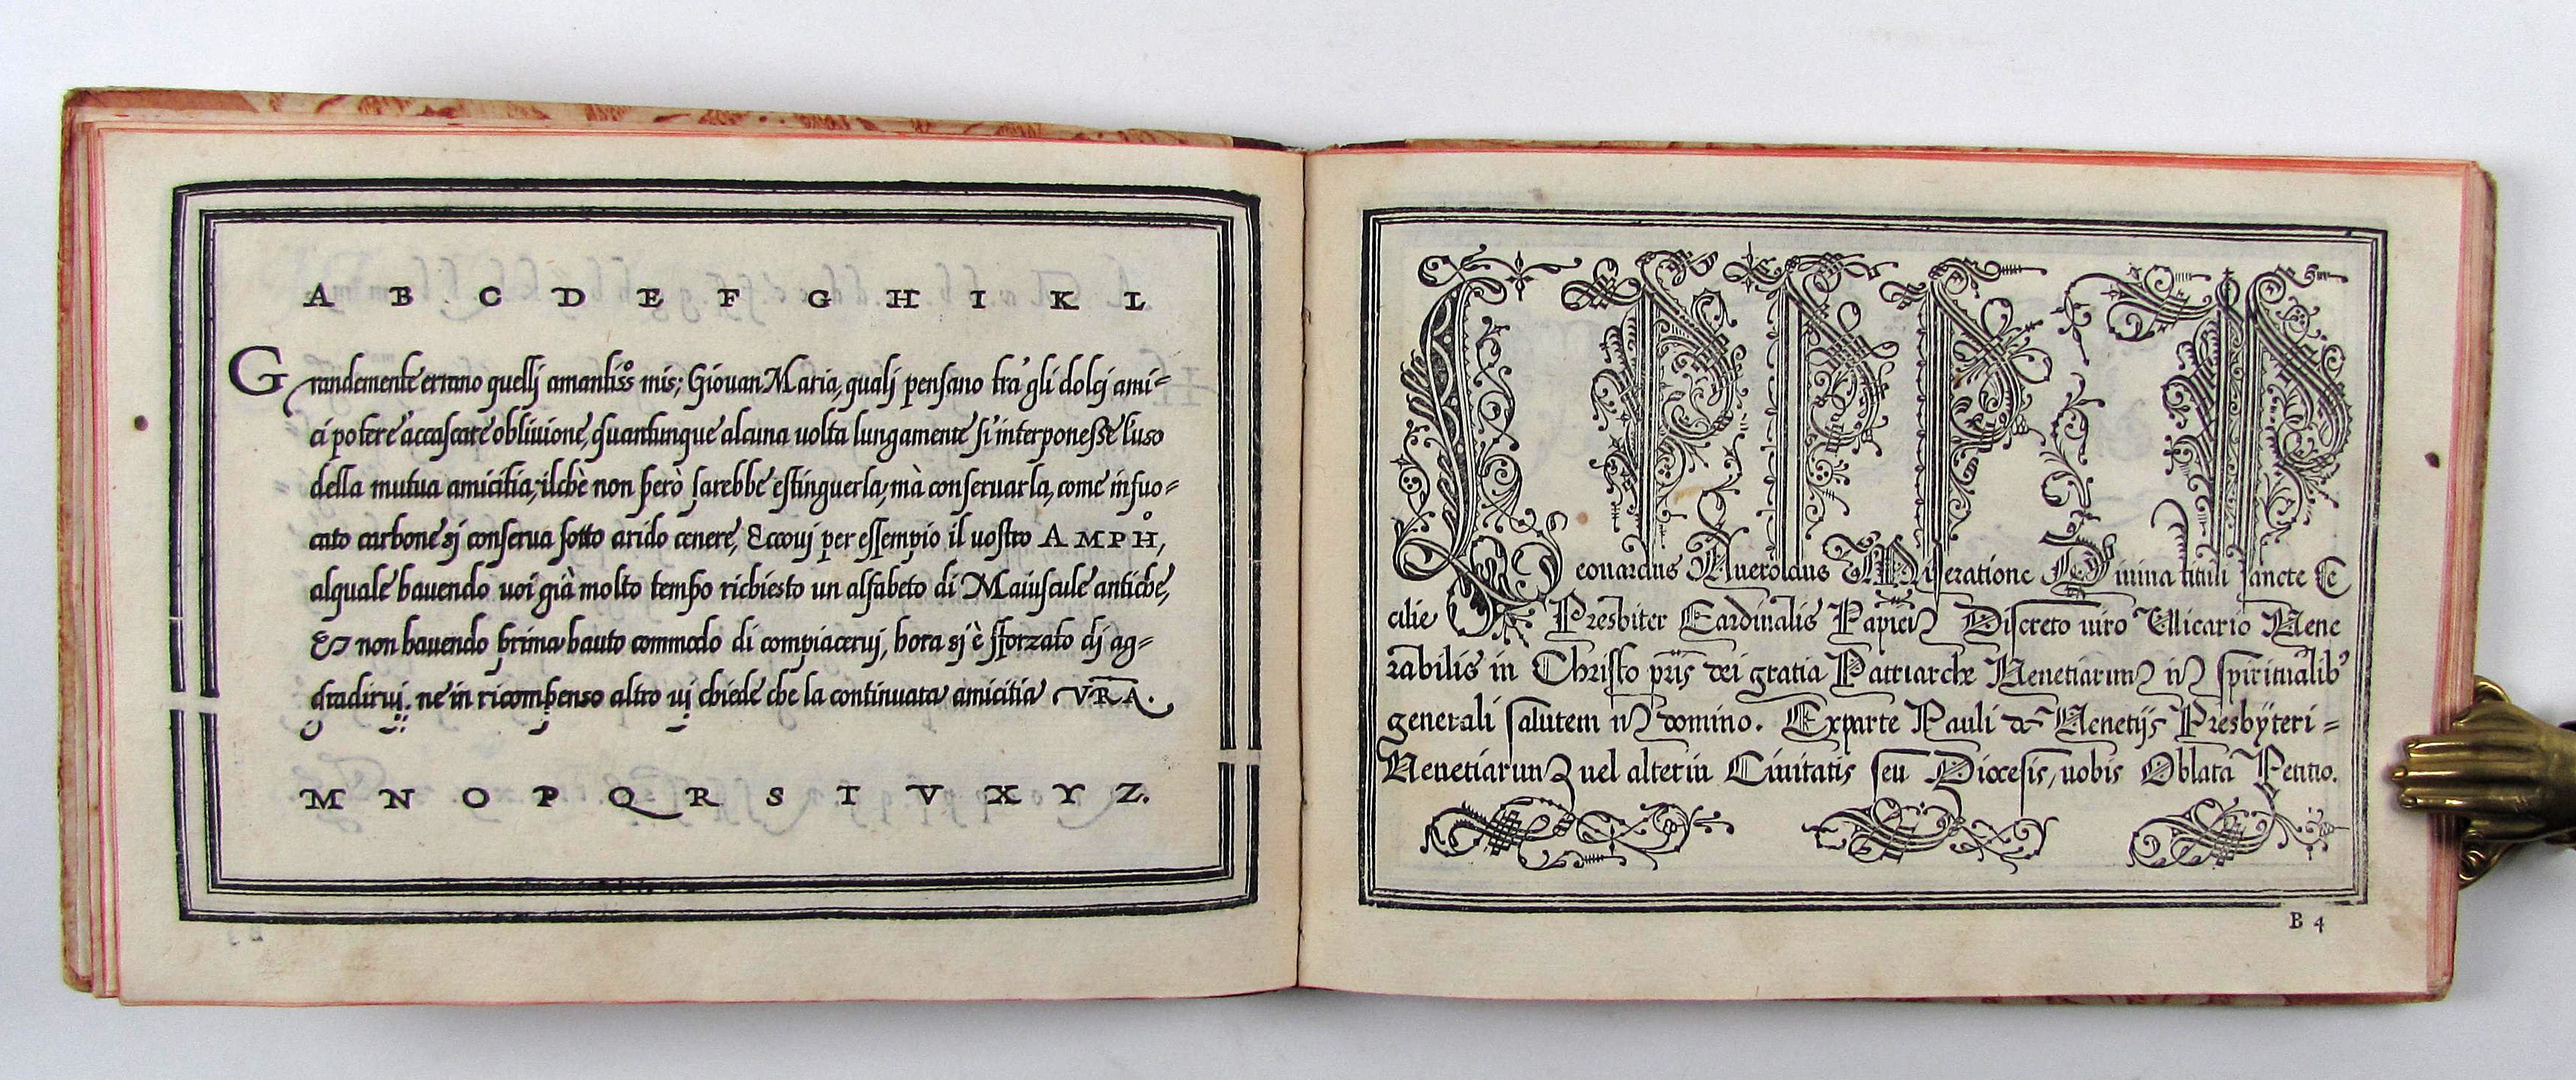 A B C D E F G H I K L
Grandemente errano quelli amantiss̊ mis; Giouan Maria, quali pensano tra' gli dolci ami=
ci potere accascare obliuione, quantunque alcuna uolta lungamente si interponesse l'uso
della mutua amicitia, ilchè non però sarebbe estinguerla, mà conseruarla, come in fuo=
cato carbone si conserua sotto arido cenere, Eccoui per essempio il uostro AMPH̊,
alquale hauendo uoi già molto tempo richiesto un alfabeto di Maiuscule antiche,
& non hauendo prima hauto commodo di compiacerui, hora si è sforzato di ag=
gradirui. ne in ricompenso altro ui chiede che la continuata amicitia VRA.
M N O P Q R S T V X Y Z.
Leonardus Aueroldus Miseratione Diuina tituli sancte Ce
cilie Presbiter Cardinalis Papien Discreto uiro Vicario Vene
rabilis in Christo pris dei gratia Patriarche Venetiarum in spiritualib'
generali salutem in domino. Exparte Pauli de Venetijs Presbÿteri=
Venetiarum uel alterius Ciuitatis seu Diocesis, uobis Oblata Petitio.
B 4